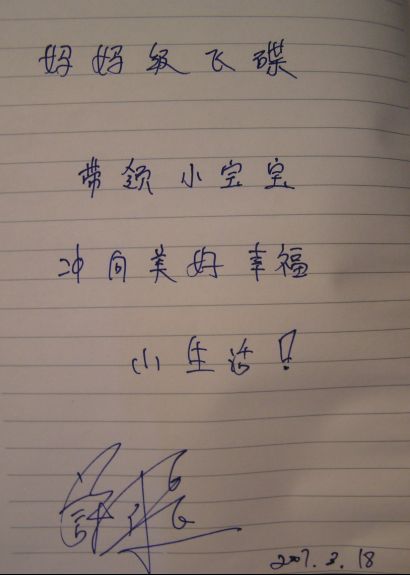 妈妈级飞碟
带领小宝宝
冲向美好幸福
小生活!
2007.3.18